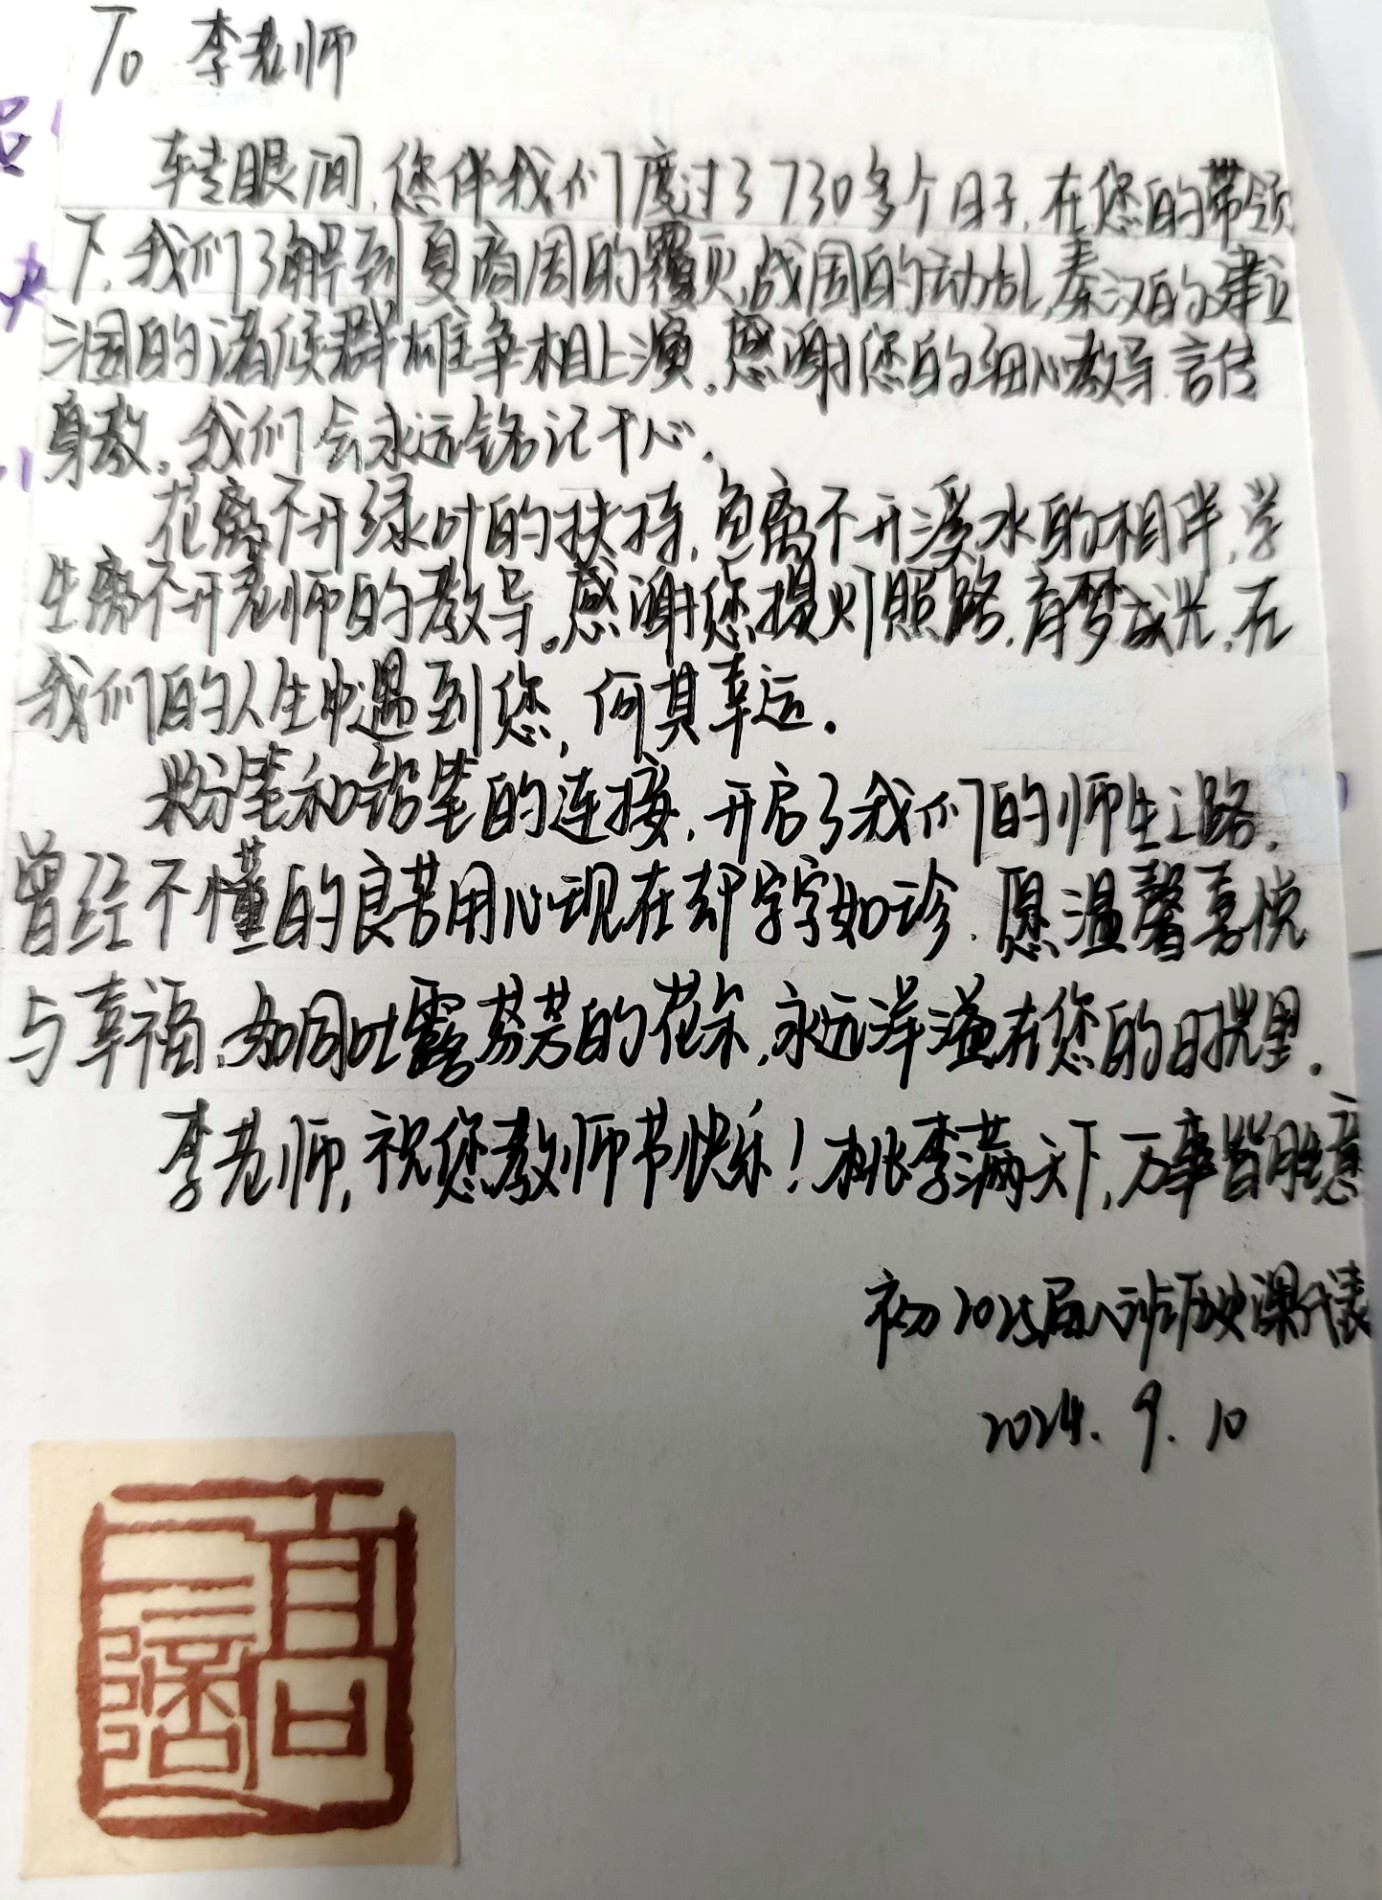 To 李老师
转眼间,您伴我们度过了730多个日子,在您的带领
下,我们了解到夏商周的覆灭,战国的动乱,秦汉的建立
三国的诸侯群雄争相上演。感谢您的细心教导,言传
身教。我们会永远铭记于心.
花离不开绿叶的扶持,鱼离不开溪水的相伴,学
生离不开老师的教导。感谢您提灯照路,育梦成光,在
我们的人生中遇到您,何其幸运.
粉笔和铅笔的连接,开启了我们的师生之路,
曾经不懂的良苦用心现在却字字如珍.愿温馨喜悦
与幸福,如同吐露芬芳的花朵,永远洋溢在您的时光里.
李老师,祝您教师节快乐!桃李满天下,万事皆胜意
初2025届八班历史课代表
2024.9.10